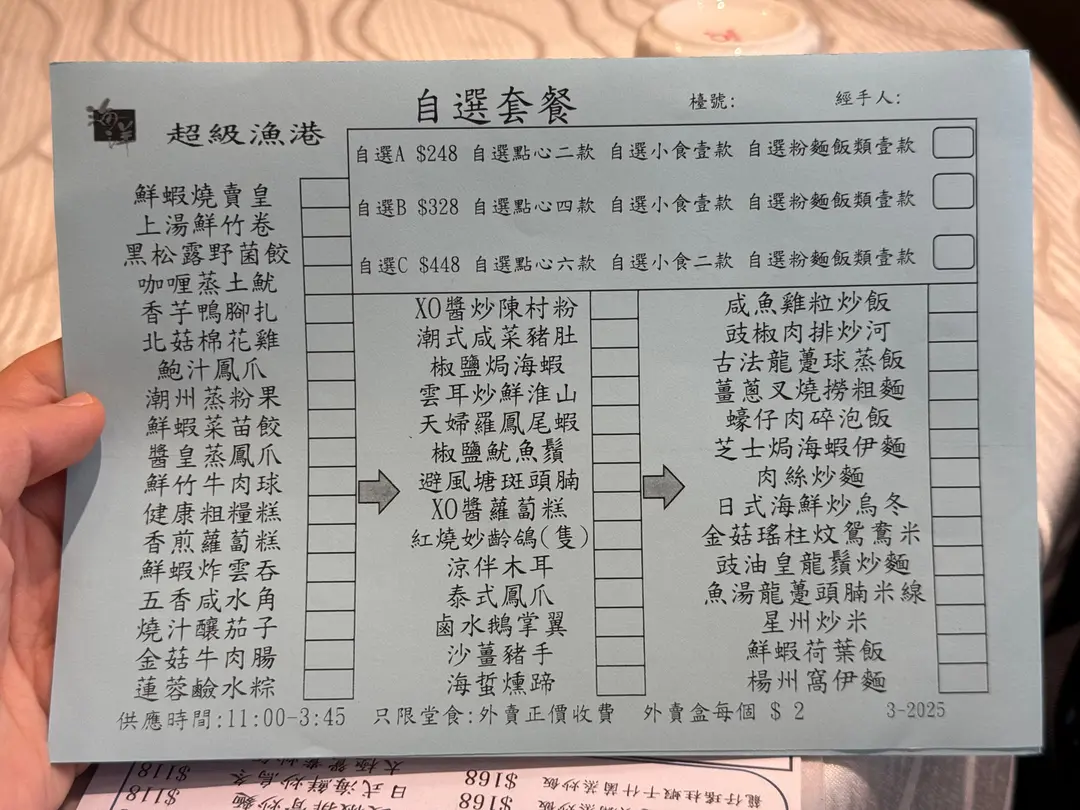 自選套餐
檯號:
經手人:
超級漁港
自選A $248 自選點心二款 自選小食壹款 自選粉麵飯類壹款
自選B $328 自選點心四款 自選小食壹款 自選粉麵飯類壹款
自選C $448 自選點心六款 自選小食二款 自選粉麵飯類壹款
鮮蝦燒賣皇
上湯鮮竹卷
黑松露野菌餃
咖喱蒸土魷
香芋鴨腳扎
北菇棉花雞
鮑汁鳳爪
潮州蒸粉果
鮮蝦菜苗餃
醬皇蒸鳳爪
鮮竹牛肉球
健康粗糧糕
香煎蘿蔔糕
鮮蝦炸雲吞
五香咸水角
燒汁釀茄子
金菇牛肉腸
蓮蓉鹼水粽
XO醬炒陳村粉
潮式咸菜豬肚
椒鹽焗海蝦
雲耳炒鮮淮山
天婦羅鳳尾蝦
椒鹽魷魚鬚
避風塘斑頭腩
XO醬蘿蔔糕
紅燒妙齡鴿(隻)
涼伴木耳
泰式鳳爪
鹵水鵝掌翼
沙薑豬手
海蜇燻蹄
咸魚雞粒炒飯
豉椒肉排炒河
古法龍躉球蒸飯
薑蔥叉燒撈粗麵
蠔仔肉碎泡飯
芝士焗海蝦伊麵
肉絲炒麵
日式海鮮炒烏冬
金菇瑤柱炆鴛鴦米
豉油皇龍鬚炒麵
魚湯龍躉頭腩米線
星州炒米
鮮蝦荷葉飯
楊州窩伊麵
供應時間:11:00-3:45 只限堂食:外賣正價收費 外賣盒每個 $ 2 3-2025
$118
日式海鮮炒烏冬
$168
$118
$168